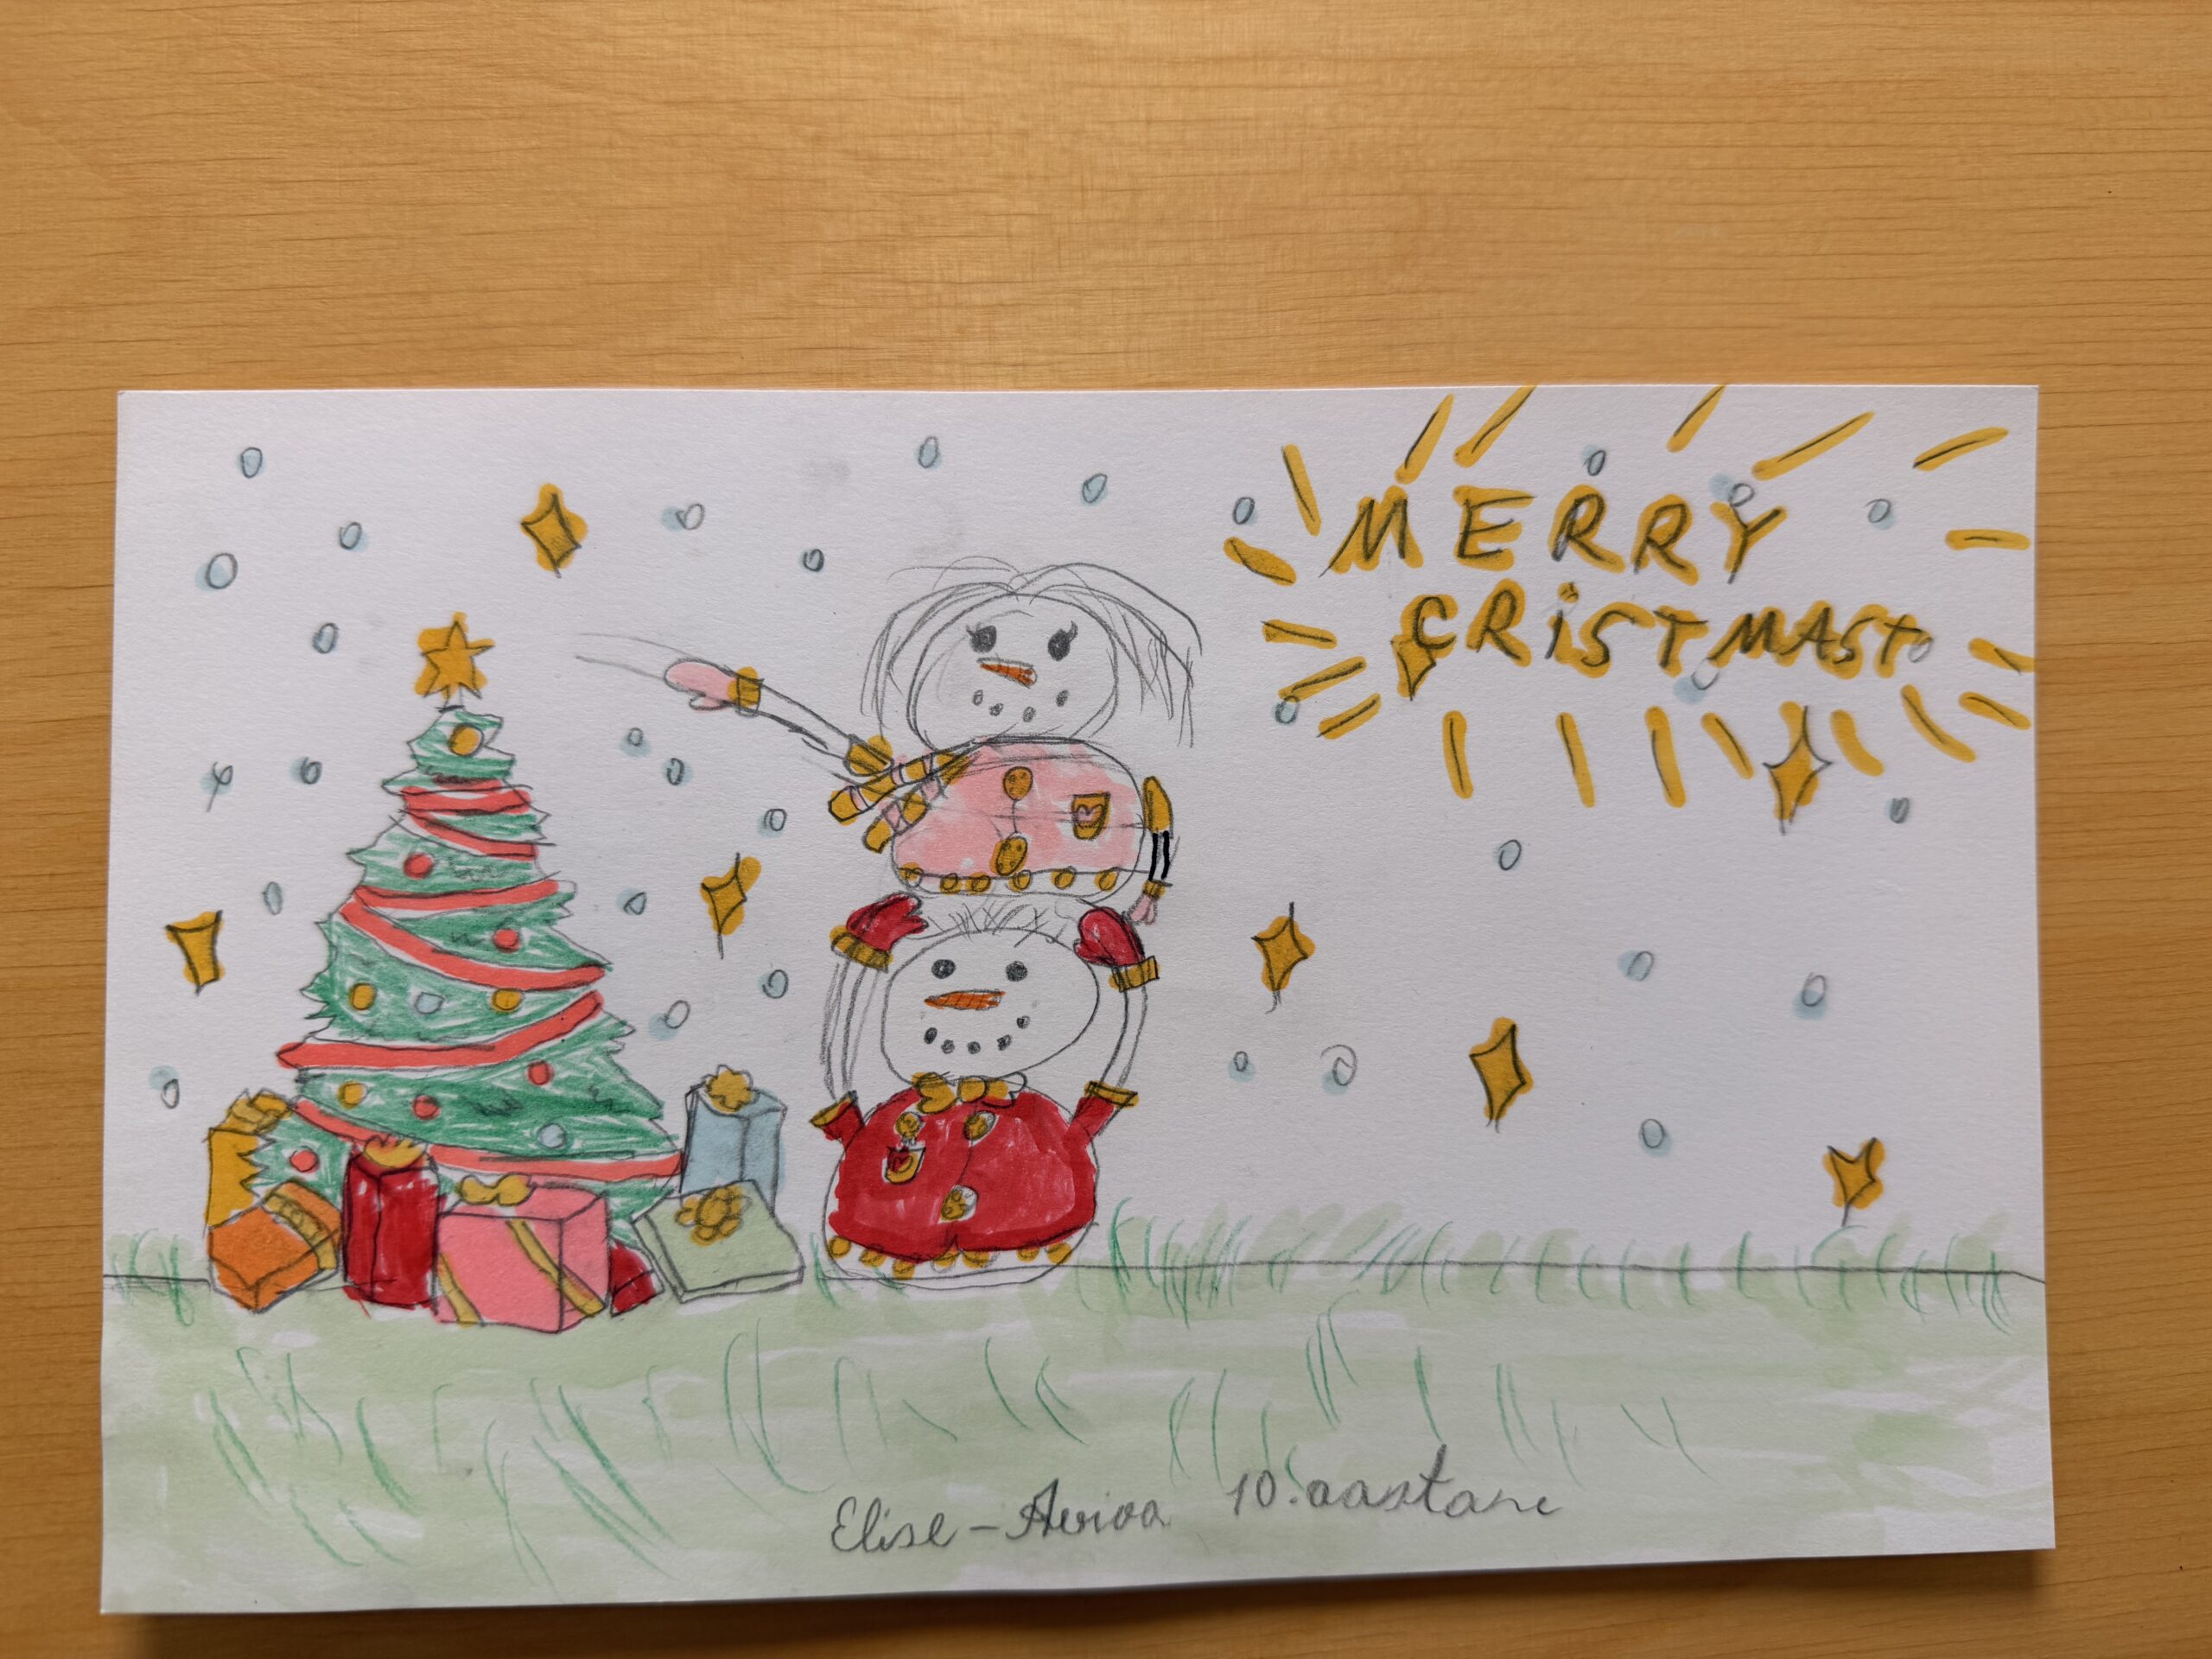 MERRY
CRiSTMAST
Elise-Aviva 10.aastane